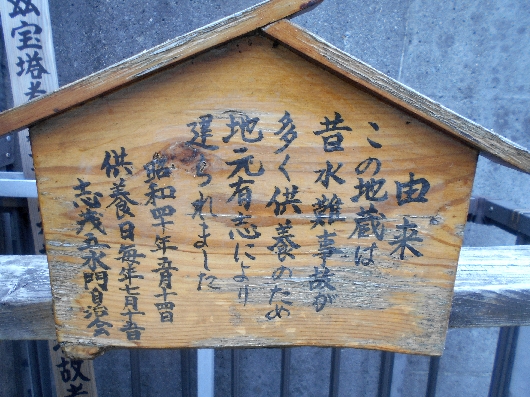 由来
この地蔵は
昔水難事故が
多く供養のため
地元有志により
建られました
昭和四十年五月十四日
供養日毎年七月十五日
志茂五水門自治会
宝塔
故者